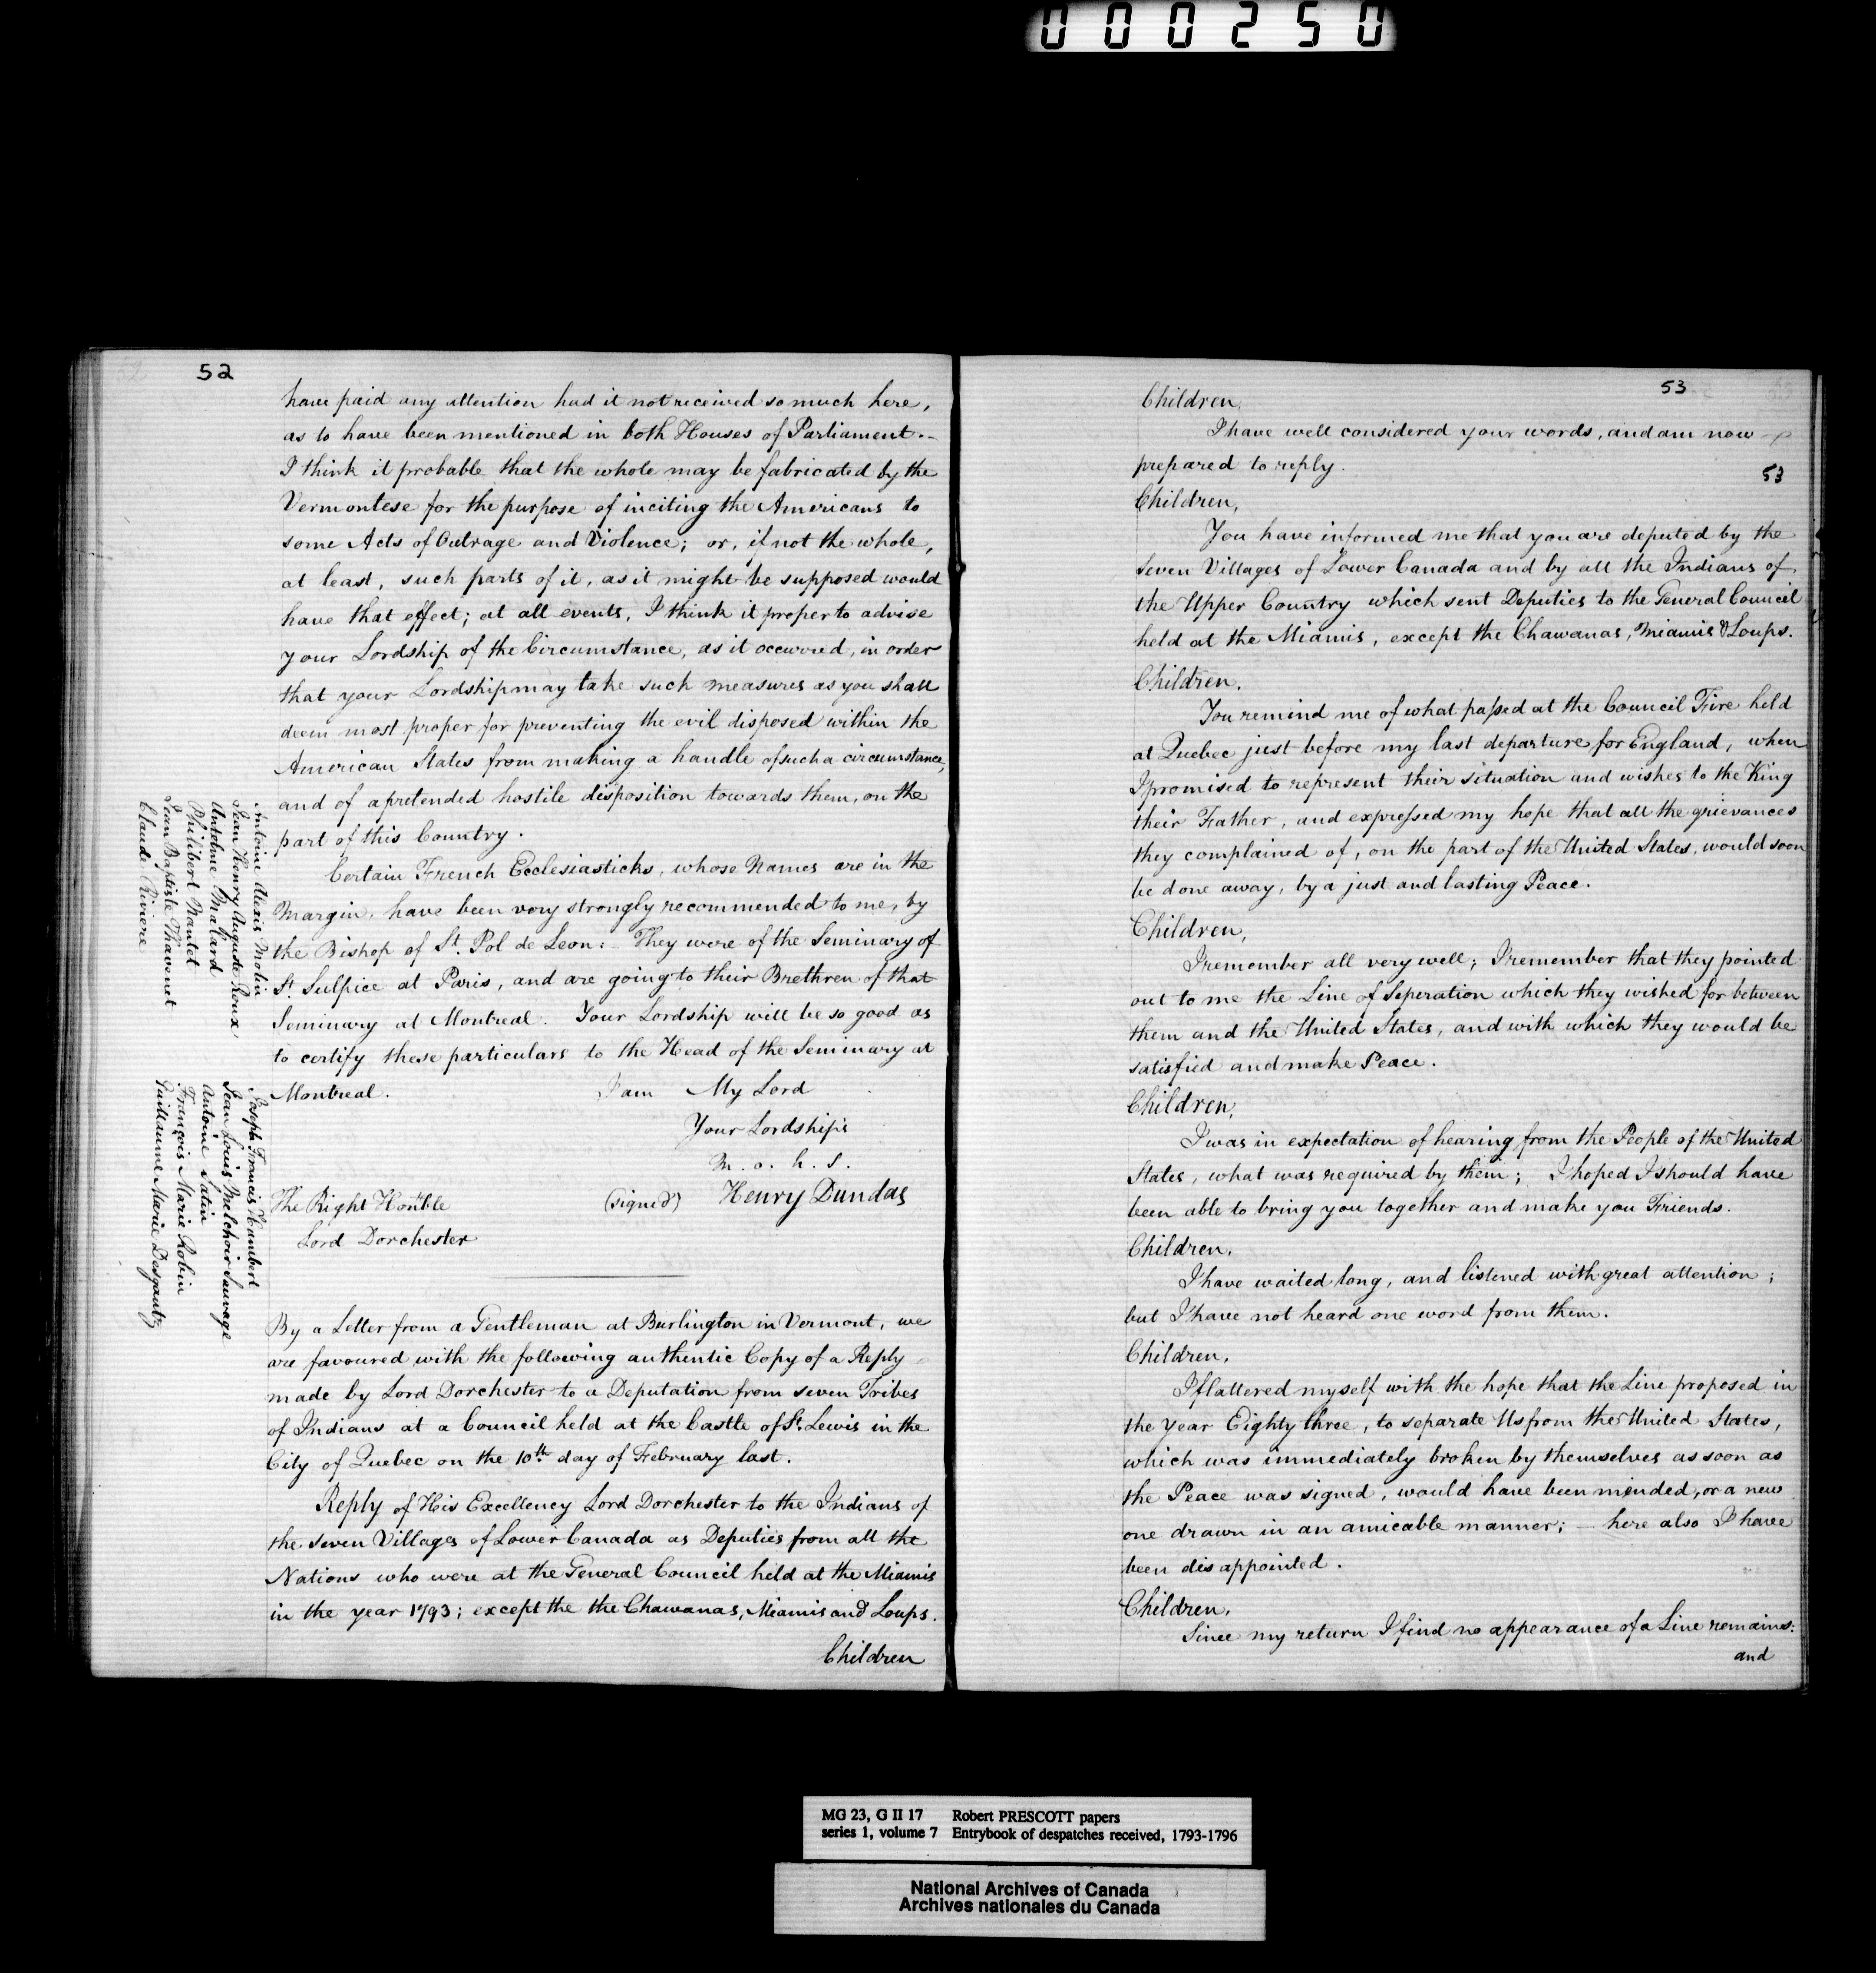 000250
52
have paid any attention had it not received so much here,
as to have been mentioned in both Houses of Parliament.-
I think it probable that the whole may be fabricated by the
Vermontese for the purpose of inciting the Americans to
some Acts of Outrage and Violence; or, if not the whole,
at least, such parts of it, as it might be supposed would
have that effect; at all events, I think it proper to advise
your Lordship of the Circumstance, as it occurred, in order
that your Lordship may take such measures as you shall
deem most proper for preventing the evil disposed within the
American States from making a handle of such a circumstance,
and of a pretended hostile disposition towards them, on the
part of this Country.
Certain French Ecclesiasticks, whose Names are in the
Margin, have been very strongly recommended to me, by
the Bishop of St. Pol de Leon:- They were of the Seminary of
St. Sulpice at Paris, and are going to their Brethren of that
Seminary at Montreal. Your Lordship will be so good as
to certify these particulars to the Head of the Seminary at
Montreal. I am My Lord
Your Lordship's
m. o. h. s.
(signed) Henry Dundas
The Right Honble
Lord Dorchester
Antoine Alexis Molin
Jean Henry Auguste Roux
Antoine Malard
Philibert Nantet
Jean Baptiste Thavenet
Claude Riviere
Joseph Francis Humbert
Jean Louis Melchoir Sauvage
Antoine Satin
François Marie Robin
Guillaume Marie Desgautz
By a Letter from a Gentleman at Burlington in Vermont, we
are favoured with the following authentic Copy of a Reply
made by Lord Dorchester to a Deputation from seven Tribes
of Indians at a Council held at the Castle of St. Lewis in the
City of Quebec on the 10th day of February last.
Reply of His Excellency Lord Dorchester to the Indians of
the seven Villages of Lower Canada as Deputies from all the
Nations who were at the General Council held at the Miamis
in the year 1793; except the the Chawanas, Miamis and Loups.
Children
53
Children,
I have well considered your words, and am now
prepared to reply.
53
Children,
You have informed me that you are deputed by the
seven Villages of Lower Canada and by all the Indians of
the Upper Country which sent Deputies to the General Council
held at the Miamis, except the Chawanas, Miamis & Loups.
Children,
You remind me of what passed at the Council Fire held
at Quebec just before my last departure for England, when
I promised to represent their situation and wishes to the King
their Father, and expressed my hope that all the grievances
they complained of, on the part of the United States, would soon
be done away, by a just and lasting Peace.
Children,
I remember all very well; I remember that they pointed
out to me the Line of Seperation which they wished for between
them and the United States, and with which they would be
satisfied and make Peace.
Children,
I was in expectation of hearing from the People of the United
States, what was required by them; I hoped I should have
been able to bring you together and make you Friends.
Children,
I have waited long, and listened with great attention;
but I have not heard one word from them.
Children,
I flattered myself with the hope that the Line proposed in
the year Eighty three, to separate Us from the United States,
which was immediately broken by themselves as soon as
the Peace was signed, would have been minded, or a new
one drawn in an amicable manner; - here also I have
been disappointed.
Children,
Since my return I find no appearance of a Line remains:
and
MG 23, G II 17 Robert PRESCOTT papers
series 1, volume 7 Entrybook of despatches received, 1793-1796
National Archives of Canada
Archives nationales du Canada